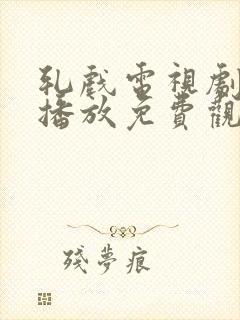 亂戲電視劇
播放免費觀
殘夢痕